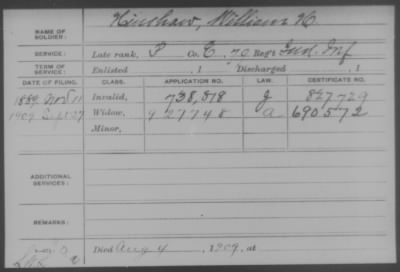 NAME OF SOLDIER: Hinshaw, William H
SERVICE: Late rank, P Co. E, 70 Reg't Ind. Inf
TERM OF SERVICE: Enlisted , 1 Discharged , 1
DATE OF FILING. CLASS. APPLICATION NO. LAW. CERTIFICATE NO.
1889 Nov 11 Invalid, 738,818 J 827729
1909 Sept 27 Widow, 927748 a 690572
Minor,
ADDITIONAL SERVICES:
REMARKS:
Died Aug 4 , 1909, at